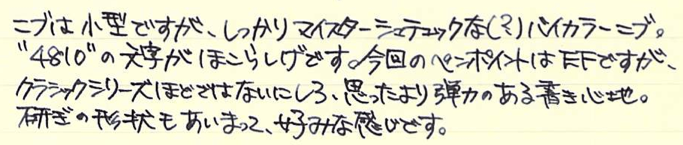 ニブは小型ですが、しっかりマイスターシュテュックな(?)バイカラーニブ。
"4810"の文字がほこらしげです。今回のペンポイントはEFですが、
クラシックシリーズほどではないにしろ、思ったより弾力のある書き心地。
研ぎの形状もあいまって、好みな感じです。